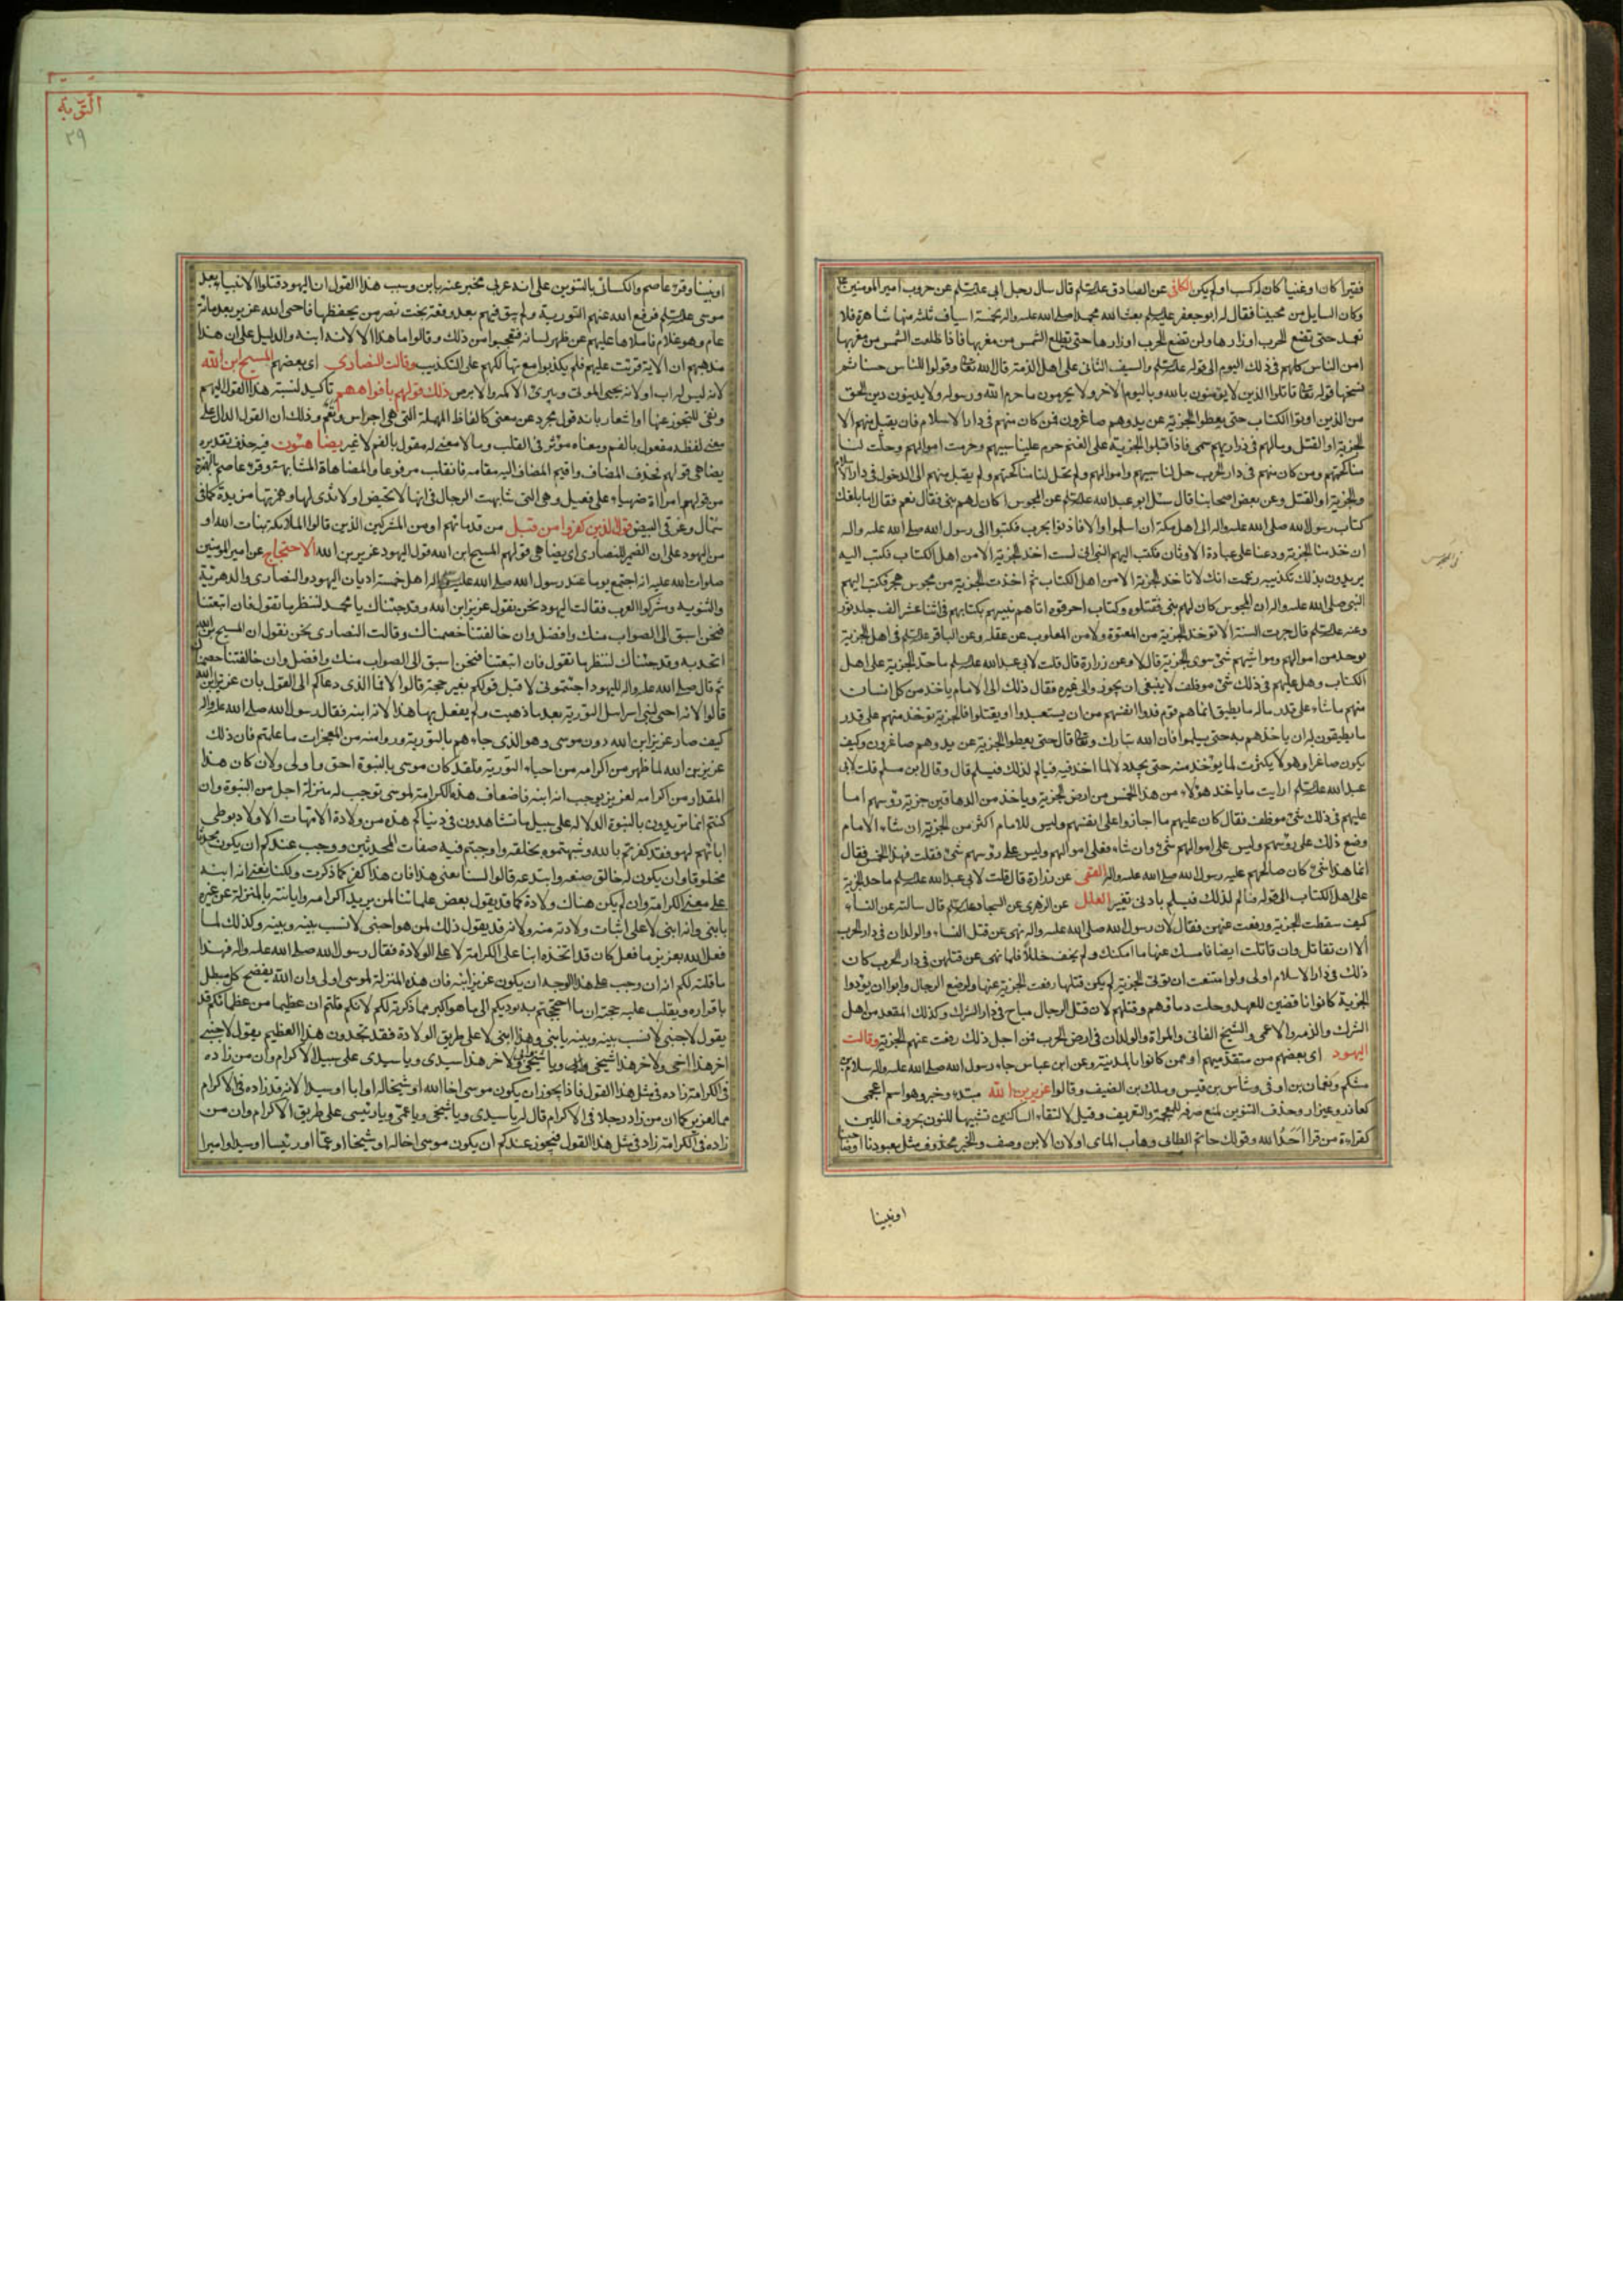 فقيرا كان او غنيا كان له كسب او لم يكن الكافى عن الصادق عليه السلم قال سال رجل ابى عليه السلم عن حروب امير المومنين ع
وكان السايل من محبينا فقال له ابو جعفر عليه السلم بعث الله محمدا صلى الله عليه واله بخمسة اسياف ثلثة منها شاهرة فلا
تغمد حتى تضع الحرب اوزارها ولن تضع الحرب اوزارها حتى تطلع الشمس من مغربها فاذا طلعت الشمس من مغربها
امن الناس كلهم فى ذلك اليوم الى قوله عليه السلم والسيف الثانى على اهل الذمة قال الله تعالى وقولوا للناس حسنا ثم
نسخها قوله تعالى قاتلوا الذين لا يؤمنون بالله و باليوم الاخر ولا يحرمون ما حرم الله ورسوله ولا يدينون دين الحق
من الذين اوتوا الكتاب حتى يعطوا الجزية عن يد وهم صاغرون فمن كان منهم فى دار الاسلام فلن يقبل منهم الا
الجزية او القتل ومالهم فئ وذراريهم سبى فاذا قبلوا الجزية على انفسهم حرم علينا سبيهم وحرمت اموالهم وحلت لنا
مناكحتهم ومن كان منهم فى دار الحرب حل لنا سبيهم واموالهم ولم تحل لنا مناكحتهم ولم يقبل منهم الا الدخول فى دار الاسلام
والجزية او القتل وعن بعض اصحابنا قال سئل ابو عبد الله عليه السلم عن المجوس اكان لهم نبى فقال نعم فقال اما بلغك
كتاب رسول الله صلى الله عليه واله الى اهل مكة ان اسلموا والا فاذنوا بحرب فكتبوا الى رسول الله صلى الله عليه واله
ان خذ منا الجزية ودعنا على عبادة الاوثان فكتب اليهم النبى انى لست اخذ الجزية الا من اهل الكتاب فكتب اليه
يريدون بذلك تكذيبه زعمت انك لا تاخذ الجزية الا من اهل الكتاب ثم اخذت الجزية من مجوس هجر فكتب اليهم
النبى صلى الله عليه واله ان المجوس كان لهم نبى فقتلوه وكتاب احرقوه اتاهم نبيهم بكتابهم فى اثنا عشر الف جلد ثور
وعنه عليه السلم قال جرت السنة الا توخذ الجزية من المعتوه ولا من المغلوب عن عقله وعن الباقر عليه السلم فى اهل الجزية
يوخذ من اموالهم ومواشيهم شئ سوى الجزية قال لا وعن زرارة قال قلت لابى عبد الله عليه السلم ما حد الجزية على اهل
الكتاب وهل عليهم فى ذلك شئ موظف لا ينبغى ان يجوز الى غيره فقال ذلك الى الامام ياخذ من كل انسان
منهم ما شاء على قدر ماله ما يطيق انما هم قوم فدوا انفسهم من ان يستعبدوا او يقتلوا فالجزية توخذ منهم على قدر
ما يطيقون له ان ياخذهم به حتى يسلموا فان الله تبارك وتعالى قال حتى يعطوا الجزية عن يد وهم صاغرون وكيف
يكون صاغرا وهو لا يكترث لما يوخذ منه حتى يجد ذلا لما اخذ منه فيالم لذلك فيسلم قال وقال ابن مسلم قلت لابى
عبد الله عليه السلم ارايت ما ياخذ هؤلاء من هذا الخمس من ارض الجزية وياخذ من الدهاقين جزية رؤسهم اما
عليهم فى ذلك شئ موظف فقال كان عليهم ما اجازوا على انفسهم وليس للامام اكثر من الجزية ان شاء الامام
وضع ذلك على رؤسهم وليس على اموالهم شئ وان شاء فعلى اموالهم وليس على رؤسهم شئ فقلت فهذا الخمس فقال
انما هذا شئ كان صالحهم عليه رسول الله صلى الله عليه واله القمى عن زرارة قال قلت لابى عبد الله عليه السلم ما حد الجزية
على اهل الكتاب الى قوله فيالم لذلك فيسلم بادنى تغيير العلل عن الزهرى عن السجاد عليه السلم قال سالته عن النساء
كيف سقطت الجزية ورفعت عنهن فقال لان رسول الله صلى الله عليه واله نهى عن قتل النساء والولدان فى دار الحرب
الا ان تقاتل وان قاتلت ايضا فامسك عنها ما امكنك ولم تخف خللا فلما نهى عن قتلهن فى دار الحرب كان
ذلك فى دار الاسلام اولى ولو امتنعت ان تؤدى الجزية لم يكن قتلها رفعت الجزية عنها ولو منع الرجال وابوا ان يؤدوا
الجزية كانوا ناقضين للعهد وحلت دماؤهم وقتلهم لان قتل الرجال مباح فى دار الشرك وكذلك المقعد من اهل
الشرك والذمة والاعمى والشيخ الفانى والمراة والولدان فى ارض الحرب فمن اجل ذلك رفعت عنهم الجزية وقالت
اليهود اى بعضهم من متقدميهم او ممن كانوا بالمدينة وعن ابن عباس جاء رسول الله صلى الله عليه واله سلام بن
مشكم ونعمان بن اوفى وشاس بن قيس وملك بن الضيف وقالوا عزير بن الله مبتدء وخبر وهو اسم اعجمى
كعاذر وعيزار وحذف التنوين لمنع صرفه للعجمة والتعريف وقيل لالتقاء الساكنين تشبيها للنون بحروف اللين
كقراءة من قرا احد الله وقولك حاتم الطائى وهاب المائ اولان الابن وصف والخبر محذوف مثل معبودنا اوصاحبنا
اونبينا
التوبة
٢٩
اونبينا وقرء عاصم والكسائى بالتنوين على انه عربى مخبر عنه بابن وسبب هذا القول ان اليهود قتلوا الانبياء بعد
موسى عليه السلم فرفع الله عنهم التورية ولم يبق فيهم بعد وقعة بخت نصر من يحفظها فاحى الله عزير بعد مائة
عام وهو غلام فاملاها عليهم عن ظهر لسانه فتعجبوا من ذلك وقالوا ما هذا الا لانه ابنه والدليل على ان هذا
مذهبهم ان الاية قرئت عليهم فلم يكذبوا مع تهالكهم على التكذيب وقالت النصارى اى بعضهم المسيح ابن الله
لانه ليس له اب اولانه يحيى الموتى ويبرئ الاكمه والابرص ذلك قولهم بافواههم تاكيد لنسبة هذا القول اليهم
ونفى للتجوز عنها او اشعار بانه قول مجرد عن معنى كالفاظ المهملة التى هى اجراس ونغم وذلك ان القول الدال على
معنى لفظه مفعول بالفم ومعناه مؤثر فى القلب وما لا معنى له مقول بالفم لا غير يضاهئون فيه حذف تقديره
يضاهى قولهم فحذف المضاف واقيم المضاف اليه مقامه فانقلب مرفوعا والمضاهاة المشابهة وقرء عاصم بالهمزة
من قولهم امراة ضهياء على فعيل وهى التى شابهت الرجال فى انها لا تحيض او لا ثدى لها وهمزتها مزيدة كما فى
شمال وغرقى البيض قول الذين كفروا من قبل من قدمائهم او من المشركين الذين قالوا الملائكة بنات الله او
من اليهود على ان الضمير للنصارى اى يضاهى قولهم المسيح ابن الله قول اليهود عزير بن الله الاحتجاج عن امير المومنين
صلوات الله عليه انه اجتمع يوما عند رسول الله صلى الله عليه واله اهل خمسة اديان اليهود والنصارى والدهرية
والثنوية ومشركوا العرب فقالت اليهود نحن نقول عزير ابن الله وقد جئناك يا محمد لننظر ما تقول فان اتبعتنا
فنحن اسبق الى الصواب منك وافضل وان خالفتنا خصمناك وقالت النصارى نحن نقول ان المسيح ابن الله
اتحد به وقد جئناك لننظر ما تقول فان اتبعتنا فنحن اسبق الى الصواب منك وافضل وان خالفتنا خصمناك
ثم قال صلى الله عليه واله لليهود اجئتمونى لاقبل قولكم بغير حجة قالوا لا قال فما الذى دعاكم الى القول بان عزيرا ابن الله
قالوا لانه احى لبنى اسرائيل التورية بعد ما ذهبت ولم يفعل بها هذا الا لانه ابنه فقال رسول الله صلى الله عليه واله
كيف صار عزير ابن الله دون موسى وهو الذى جاءهم بالتورية وراوا منه من المعجزات ما علمتم فان ذلك
عزير بن الله لما ظهر من اكرامه من احياء التورية فلقد كان موسى بالنبوة احق واولى ولان كان هذا
المقدار من اكرامه لعزير يوجب انه ابنه فاضعاف هذه الكرامة لموسى توجب له منزلة اجل من النبوة وان
كنتم انما تريدون بالنبوة الدلالة على سبيل ما تشاهدون فى دنياكم هذه من ولادة الامهات الاولاد بوطى
ابائهم لهم فقد كفرتم بالله وشبهتموه بخلقه واوجبتم فيه صفات المحدثين ووجب عندكم ان يكون محدثا
مخلوقا وان يكون له خالق صنعه وابتدعه قالوا لسنا نعنى هذا فان هذا كفر كما ذكرت ولكنا نعنى انه ابنه
على معنى الكرامة وان لم يكن هناك ولادة كما قد يقول بعض علمائنا لمن يريد اكرامه وابانته بالمنزلة عن غيره
يا بنى وانه ابنى لا على اثبات ولادته منه ولانه قد يقول ذلك لمن هو اجنبى لا نسب بينه وبينه وكذلك لما
فعل الله بعزير ما فعل كان قد اتخذه ابنا على الكرامة لا على الولادة فقال رسول الله صلى الله عليه واله فهذا
ما قلته لكم انه ان وجب على هذا الوجه ان يكون عزير ابنه فان هذه المنزلة لموسى اولى وان الله يفضح كل مبطل
باقراره ويقلب عليه حجته ان ما احتججتم به يوديكم الى ما هو اكبر مما ذكرته لكم لانكم قلتم ان عظيما من عظمائكم قد
يقول لاجنبى لا نسب بينه وبينه يا بنى وهذا ابنى لا على طريق الولادة فقد تجدون هذا العظيم يقول لاجنبى
اخر هذا اخى ولاخر هذا شيخى وابى ولاخر هذا سيدى ويا سيدى على سبيل الاكرام وان من زاده
فى الكرامة زاده فى مثل هذا القول فاذا يجوز ان يكون موسى اخا الله او شيخا له او ابا او سيدا لانه قد زاده فى الاكرام
مما لعزير كما ان من زاد رجلا فى الاكرام قال له يا سيدى ويا شيخى ويا عمى ويا رئيسى على طريق الاكرام وان من
زاده فى الكرامة زاد فى مثل هذا القول فيجوز عندكم ان يكون موسى اخا له او شيخا او عما او رئيسا او سيدا او اميرا